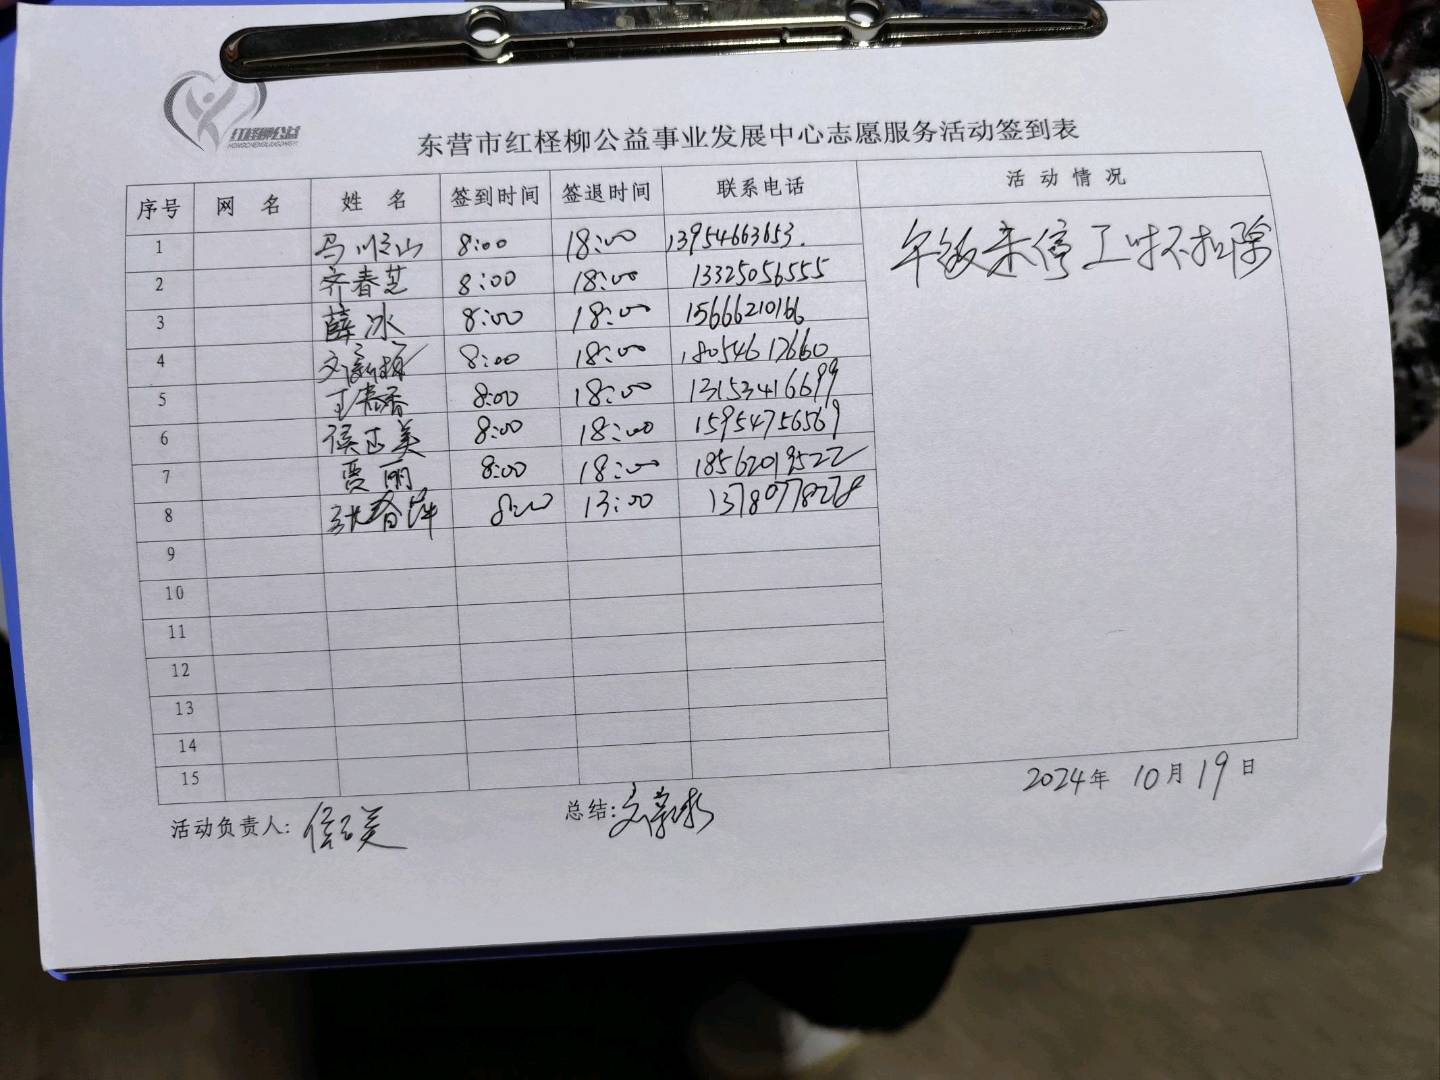 红柽柳公益
HONGCHENGLIUGONGYI
东营市红柽柳公益事业发展中心志愿服务活动签到表
序号 网 名 姓 名 签到时间 签退时间 联系电话 活 动 情 况
1 马顺山 8:00 18:00 13954663653.
2 齐春芝 8:00 18:00 13325056555
3 薛冰 8:00 18:00 15666210166
4 8:00 18:00 18054617660
5 8:00 18:00 13153416699
6 侯正美 8:00 18:00 15954756569
7 贾丽 8:00 18:00 18562019522
8 张春萍 8:00 13:00 13780778278
9
10
11
12
13
14
15
午饭未停工时不扣除
活动负责人: 总结:
2024年 10月19日